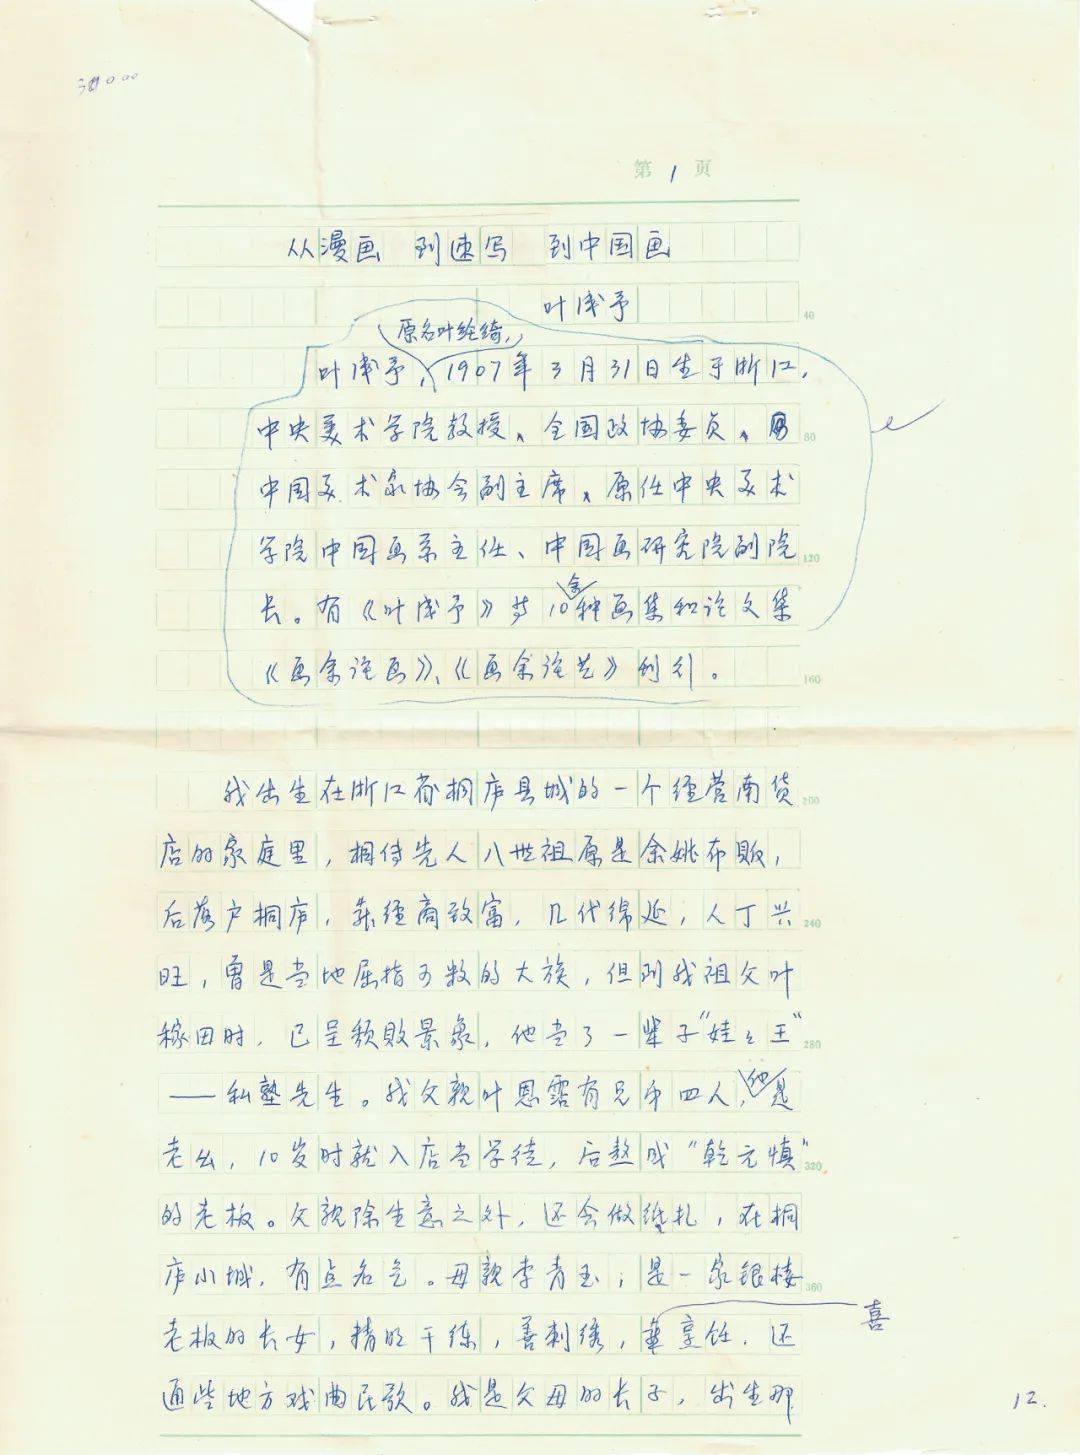 第1页
从漫画 到速写 到中国画
叶浅予
40
原名叶纶绮,
叶浅予,1907年3月31日生于浙江,
中央美术学院教授、全国政协委员、
80
中国美术家协会副主席、原任中央美术
学院中国画系主任、中国画研究院副院
120
余
长。有《叶浅予》等10种画集和论文集
《画余论画》、《画余论艺》刊行。
160
我出生在浙江省桐庐县城的一个经营南货
200
店的家庭里,相传先人八世祖原是余姚布贩,
后落户桐庐,靠经商致富,几代绵延,人丁兴
240
旺,曾是当地屈指可数的大族,但到我祖父叶
稼田时,已呈颓败景象,他当了一辈子“娃々王”
280
——私塾先生。我父亲叶恩霑有兄弟四人,他是
老么,10岁时就入店当学徒,后熬成“乾元慎”
320
的老板。父亲除生意之外,还会做纸扎,在桐
庐小城,有点名气。母亲李青玉;是一家银楼
360
老板的长女,精明干练,善刺绣,烹饪.还
喜
通些地方戏曲民歌。我是父母的长子,出生那
12.